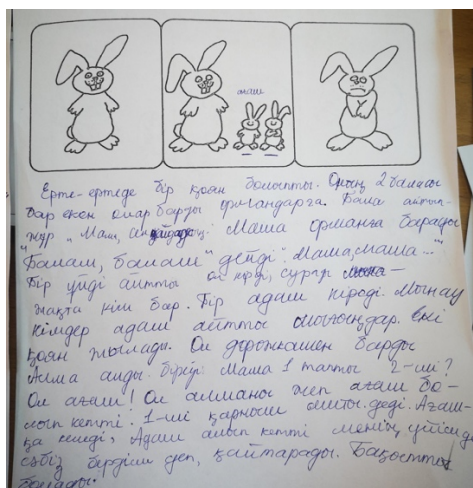 ағаш
Ерте-ертеде бір қоян болыпты. Оның 2 баласы
бар екен олар барды ормандарға. Бала айтып
жүр „ Маш, Маша орманға барады
"Балам, балам" дейді. "Маша, маша..."
Бір үйді айтты ол кірді, сұрар
жақта кім бар. Бір адам кіреді. Мынау
кімдер адам айтты екі
қоян жылады. Ол дорожкамен барды
Алма алды. бірінші Маша 1 тапты 2-ші?
Ол ағаш! Ол алманы жеп ағаш бо-
лып кетті. 1-ші қарным ашты деді. Ағаш-
қа келді, Адам алып кетті менің үйімде
сәбіз бердім деп, қайтарады. Бақытты
болады.